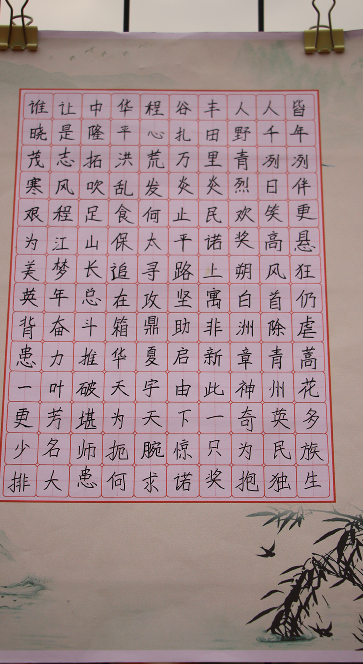 谁让中华程谷丰人人皆
晓是隆平心扎田野千年
茂志拓洪荒万里青冽冽
寒风吹乱发炎炎烈日伴
艰程足食何止民欢笑更
为江山保太平诺奖高悬
美梦长追寻路上朔风狂
英年总在攻坚寓白首仍
背奋斗箱鼎助非洲除虐
患力推华夏启新章青蒿
一叶破天宇由此神州花
更芳堪为天下一奇英多
少名师扼腕惊只为民族
排大患何求诺奖抱独生